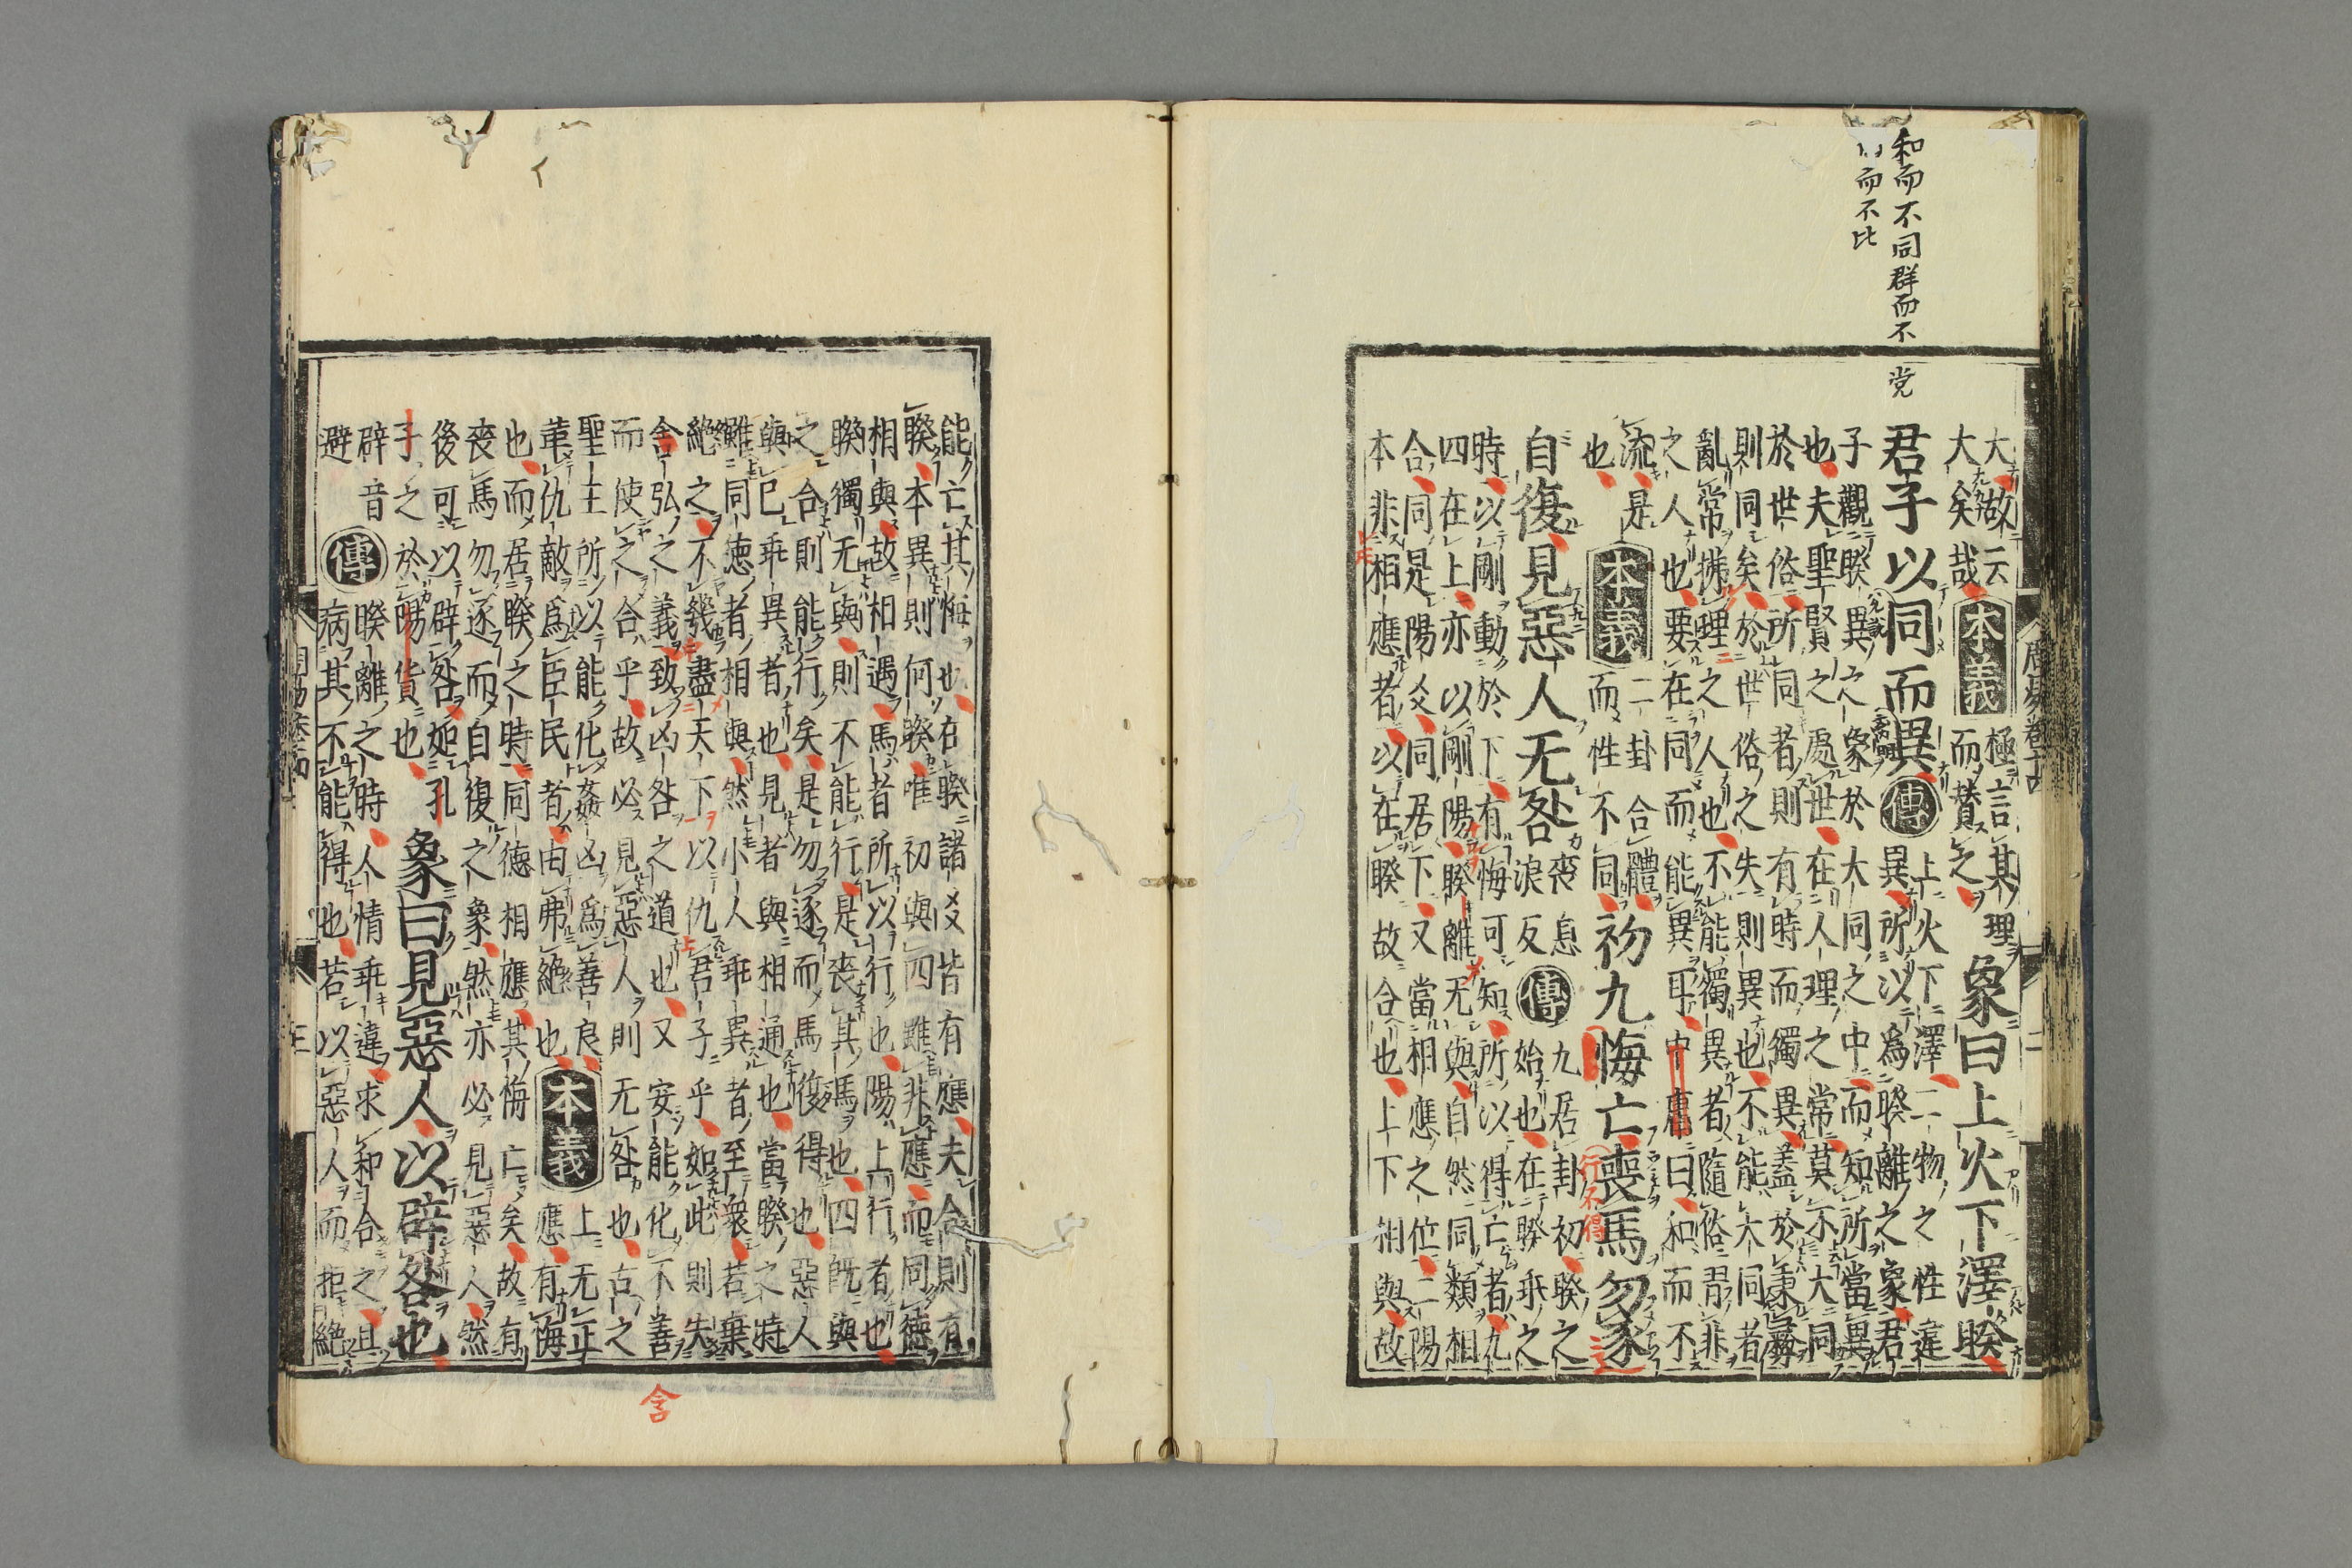 和而不同群而不党
而不比
周易卷十四
二
大故云
大矣哉
本義
極言其理
而賛之
象曰上火下澤睽
君子以同而異
傳
上火下澤二物之性違
異所以爲睽離之象君
子觀睽異之象於大同之中而知所當異
也夫聖賢之處世在人理之常莫不大同
於世俗所同者則有時而獨異蓋於秉彝
則同矣於世俗之失則異也不能大同者
亂常拂理之人也不能獨異者隨俗習非
之人也要在同而能異耳中庸曰和而不
流是
也
本義
二卦合體
而性不同
初九悔亡喪馬勿逐
行不得
自復見惡人无咎
喪息
浪反
傳
九居卦初睽之
始也在睽乖之
時以剛動於下有悔可知所以得亡者九
四在上亦以剛陽睽離无與自然同類相
合同是陽爻同居下又當相應之位二陽
本非相應者以在睽故合也上下相與故
能亡其悔也在睽諸爻皆有應夫合則有
睽本異則何睽唯初與四雖非應而同徳
相與故相遇馬者所以行也陽上行者也
睽獨无與則不能行是喪其馬也四既與
之合則能行矣是勿逐而馬復得也惡人
與已乖異者也見者與相通也當睽之時
雖同徳者相與然小人乖異者至衆若棄
絶之不幾盡天下以仇君子乎如此則失
含弘之義致凶咎之道也又安能化不善
而使之合乎故必見惡人則无咎也古之
聖王所以能化姦凶爲善良
革仇敵爲臣民者由弗絶也
本義
上无正
應有悔
也而居睽之時同徳相應其悔亡矣故有
喪馬勿逐而自復之象然亦必見惡人然
後可以辟咎如孔
子之於陽貨也
象曰見惡人以辟咎也
辟音
避
傳
睽離之時人情乖違求和合之且
病其不能得也若以惡人而拒絶
含
三